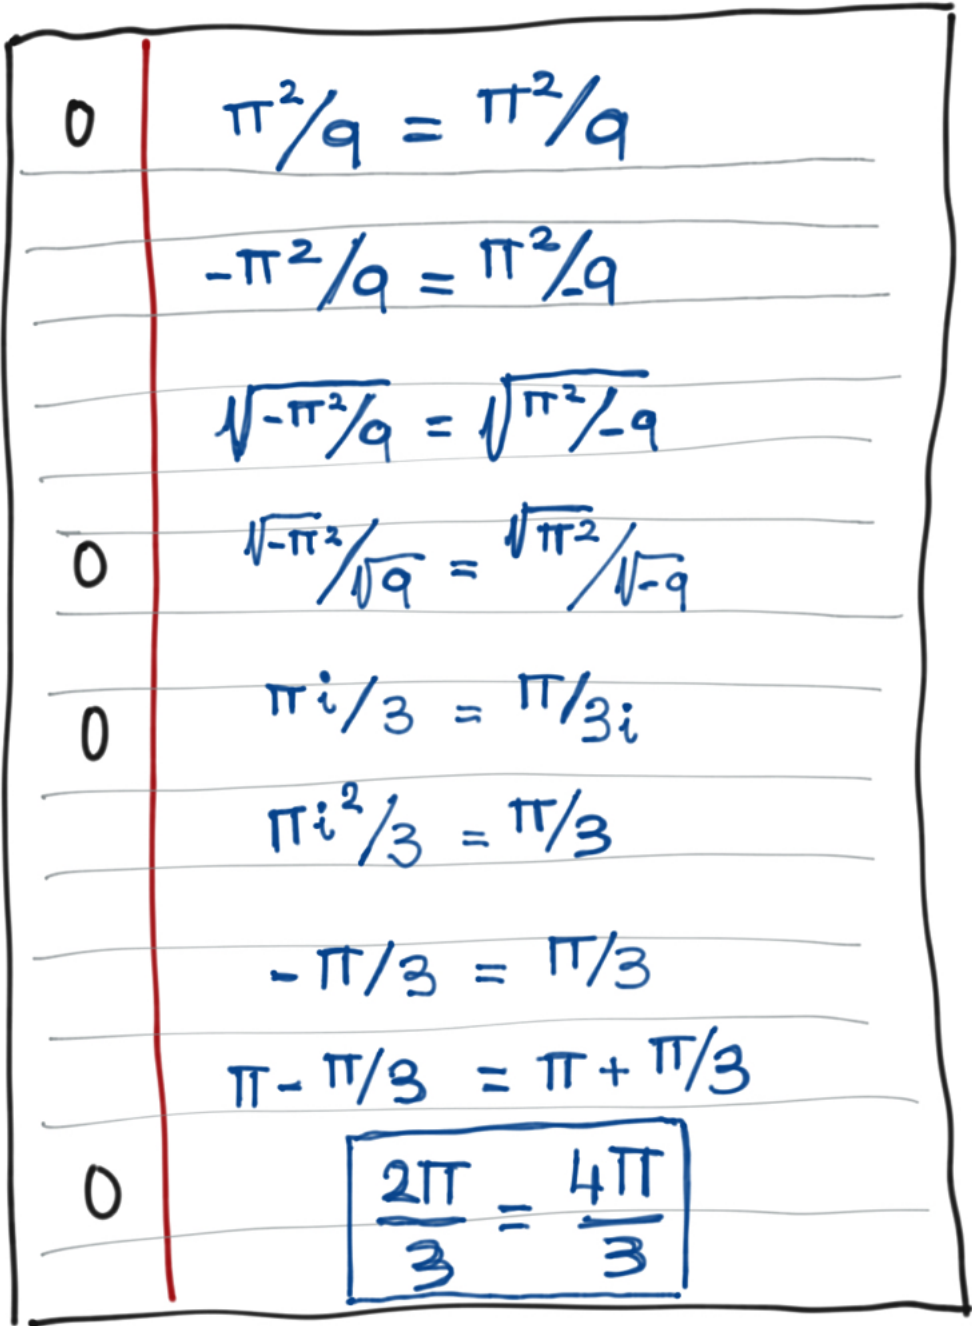 π²/9 = π²/9
-π²/9 = π²/-9
√-π²/9 = √π²/-9
√-π²/√9 = √π²/√-9
πi/3 = π/3i
πi²/3 = π/3
-π/3 = π/3
π-π/3 = π+π/3
2π/3 = 4π/3